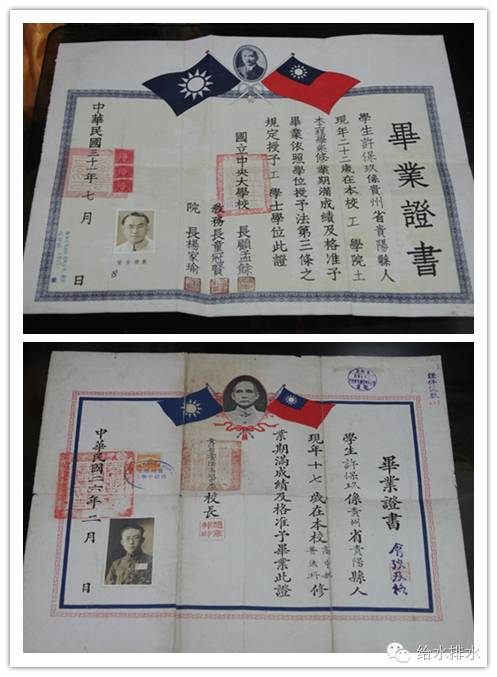 畢業證書
學生許保玖係貴州省貴陽縣人
現年二十二歲在本校工學院土
木工程學系修業期滿成績及格准予
畢業依照學位授予法第三條之
規定授予工學士學位此證
國立中央大學校長顧孟餘
教務長童冠賢
院長楊家瑜
中華民國三十一年七月日
畢業證書
學生許保玖係貴州省貴陽縣人
現年十七歲在本校高中部普通科修
業期滿成績及格准予畢業此證
校長
中華民國二六年二月日
给水排水